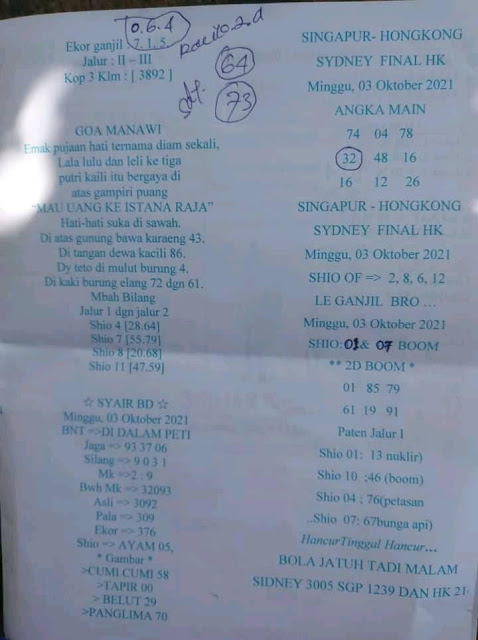 0.6.4
Ekor ganjil : 7.1.5
Jalur : II – III
Kop 3 Klm : [ 3892 ]
64
73
GOA MANAWI
Emak pujaan hati ternama diam sekali,
Lala lulu dan leli ke tiga
putri kaili itu bergaya di
atas gampiri puang
“MAU UANG KE ISTANA RAJA”
Hati-hati suka di sawah.
Di atas gunung bawa karaeng 43.
Di tangan dewa kacili 86.
Dy teto di mulut burung 4.
Di kaki burung elang 72 dgn 61.
Mbah Bilang
Jalur 1 dgn jalur 2
Shio 4 [28.64]
Shio 7 [55.79]
Shio 8 [20.68]
Shio 11 [47.59]
☆ SYAIR BD ☆
Minggu, 03 Oktober 2021
BNT =>DI DALAM PETI
Jaga => 93 37 06
Silang => 9 0 3 1
Mk =>2 : 9
Bwh Mk => 32093
Asli => 3092
Pala => 309
Ekor => 376
Shio => AYAM 05,
* Gambar *
>CUMI CUMI 58
>TAPIR 00
> BELUT 29
>PANGLIMA 70
SINGAPUR- HONGKONG
SYDNEY FINAL HK
Minggu, 03 Oktober 2021
ANGKA MAIN
74 04 78
32 48 16
16 12 26
SINGAPUR - HONGKONG
SYDNEY FINAL HK
Minggu, 03 Oktober 2021
SHIO OF => 2, 8, 6, 12
LE GANJIL BRO ...
Minggu, 03 Oktober 2021
SHIO: & 07 BOOM
** 2D BOOM *
01 85 79
61 19 91
Paten Jalur I
Shio 01: 13 nuklir)
Shio 10 ;46 (boom)
Shio 04 ; 76(petasan
..Shio 07: 67bunga api)
HancurTinggal Hancur...
BOLA JATUH TADI MALAM
SIDNEY 3005 SGP 1239 DAN HK 21